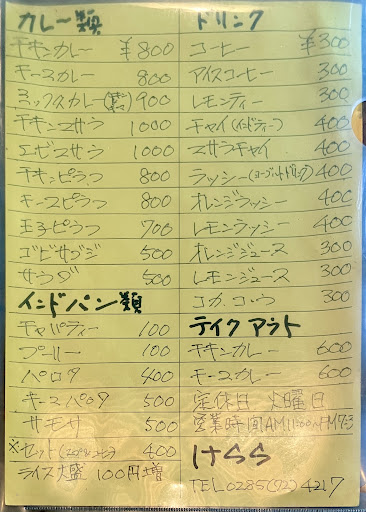 カレー類
チキンカレー ¥800
キースカレー 800
ミックスカレー 900
チキンマサラ 1000
エビマサラ 1000
チキンピラフ 800
キースピラフ 800
玉子ピラフ 700
ゴビサブジ 500
サラダ 500
インドパン類
チャパティー 100
プーリー 100
パロタ 400
キースパロタ 500
サモサ 500
※セット 400
ライス大盛 100円増
ドリンク
コーヒー ¥300
アイスコーヒー 300
レモンティー 300
チャイ(インドティー) 400
マサラチャイ 400
ラッシー(ヨーグルトドリンク) 400
オレンジラッシー 400
レモンラッシー 400
オレンジジュース 300
レモンジュース 300
コカ.コーラ 300
テイクアウト
チキンカレー 600
キースカレー 600
定休日 火曜日
営業時間AM11:00~PM7:3
けらら
TEL0285(72)4217